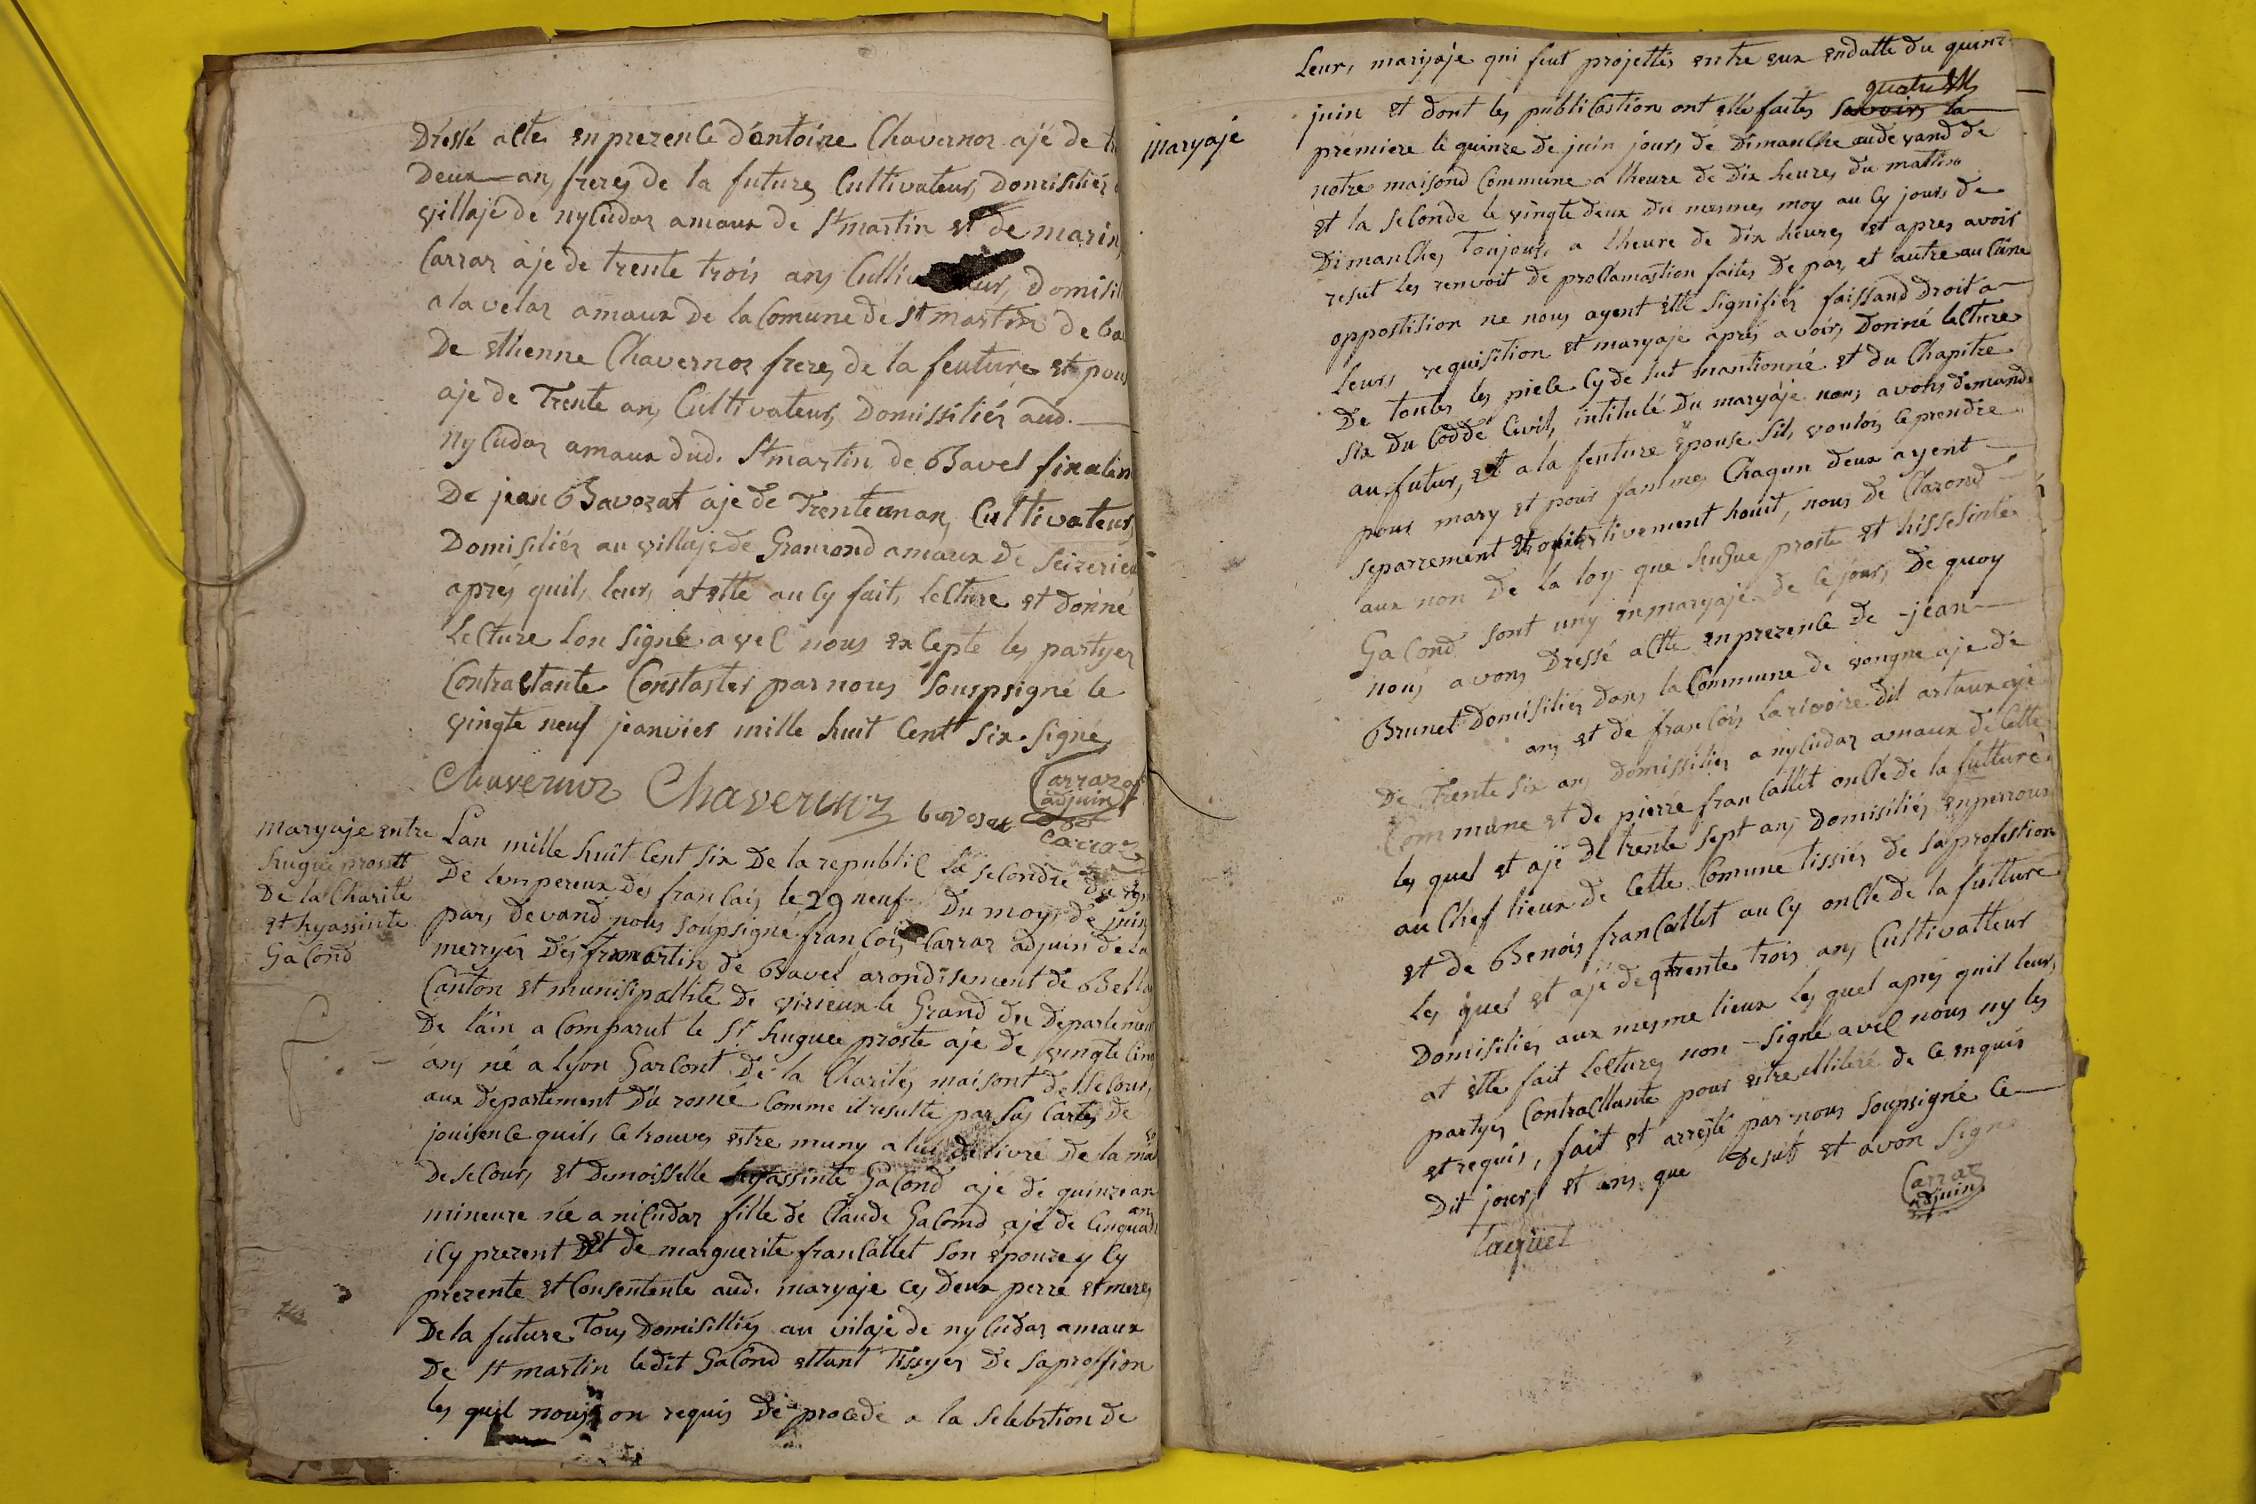 Dressé acte en prezence d'antoine Chavernoz ajé de
Deux an, freres de la future, Cultivateur, Domisiliés
villaje de nyCudaz amaux de St martin et de marin
Carraz aje de trente trois ans Cultivateur, domisil
a la velaz amaux de la Comune de St martin de ba
De Ethienne Chavernoz frere, de la feuture et pour
aje de Trente an, Cultivateur, Domissiliés aud.
nyCudaz amaux dud. St martin de Bavel finalem
De jean Bavozat aje de Trente un an, Cultivateur,
Domisiliés au villaje de Gramond amaux de Seizerieu
aprés quil, leur, at etté au Cy fait, lecture et donné
Lecture lon signé avec nous excepté les partyes
Contractante Constastés par nous soupsigné le
vingte neuf jeanvier mille huit Cent six. signé
Chavernoz Chavernoz bavozat Carraz adjuin
Carraz
maryaje entre
hugue prostt
De la Charité
et hyassinte
GaCond
Lan mille huit Cent six De la republiC la seConde du
De lempereux des francais, le 29 neuf Du moys de juin
par, devand nous soupsigné françois Carraz adjuin de la
merryés Des St martin de Bavel arondisement de Bella
Canton et munisipallité De virieux le Grand du Departement
De l'ain a Comparut le Sr. huguee proste aje de vingte Cin
ans né a lyon GarCont De la Charité, maisont de seCour,
aux departement Du rosne Comme il resulte par sa, Carte, de
jouisence quil, Ce trouve, estre muny a lui delivré De la mai
De seCour, et Demoisselle hyassinte GaCond aje de quinze an
mineure née a niCudaz fille de Claude GaCond ajé de Cinquante an
iCy prezent Et de marguerite franCallet son epouze y Cy
prezente et Consentente aud. maryaje ces deux perre et mere,
De la future Tous Domisilliés au vilaje de nyCudaz amaux
De St martin ledit GaCond ettant Tissyer De sa proffion
les quel nous on requis De procede a la selebrtion de
maryaje
Leur, maryaje qui feut projettés entre eux endatte du quinz
juin et dont les publiCastion ont etté faites savoir, la
premiere le quinze De juin jours de Dimanche audevand de
notre maisond Commune a lheure de Dix heures du mattin
et la seConde le vingte deux du mesmes moy au Cy jours de
Dimanche, Toujour, a lheure de dix heure, et apres avoir
resut les renvoit de proclamastion faites De par, et autre auCune
oppostition ne nous ayent etté signifiés faissand droit a
leur, requisition et maryaje aprés avoir, Donné lecture
De toutes les pieCe Cy de sut mantionné et du Chapitre
six du Codde Civil, intitulé Du maryaje nous avons demandé
au futur, et a la feuture épouse sil, voulois Ce prendre
pour mary et pour famme, Chaqun deux ayent
separrement et ofirmativement houit, nous de Clarond
aux non De la loy que hugue proste et hissesinte
GaCond sont uny en maryaje de Ce jour, De quoy
nous avons Dressé actte en prezence de jean
Brunet Domisiliés dans la Commune de vongne aje de
ans et de françois Larivoire dit artaux aje
De Trente six an, domissiliés a nyCudaz amaux de Cette
Commune et de pierre franCallet onCle de la future
les quel et ajé de trente sept an, Domisiliés en perroux
au Chef lieux de Cette Comune tissiér de sa profestion
et de Benois franCallet au Cy onCle de la future
les quel et aje de trente trois an, Cultivatteur
Domisiliés aux mesme lieux les quel aprés quil leur,
at etté fait lecture, non signé avec nous ny les
partyes Contractante pour estre illiteré de Ce enquis
et requis, fait et arresté par nous soupsigné Ce
Dit jour, et ans que desut et avon signé
Carraz
adjuin